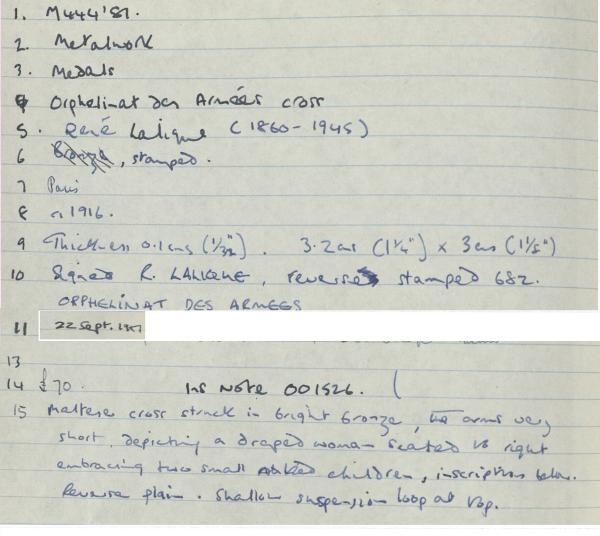 1. M444'87.
2. Metalwork
3. Medals
4 Orphelinat des Armées cross
5. René Lalique (1860-1945)
6 Bronze, stamped.
7 Paris
8 c1916.
9 Thickness 0.1cms (1/32"). 3.2cms (1¼") x 3cms (1⅕")
10 Signed R. LALIQUE, reverse stamped 682.
ORPHELINAT DES ARMEES
11 22 Sept. 1987
13
14 £70. Ins Note 001526.
15 Maltese cross struck in bright bronze, the arms very
short, depicting a draped woman seated to right
embracing two small naked children, inscription below.
Reverse plain. Shallow suspension loop at top.